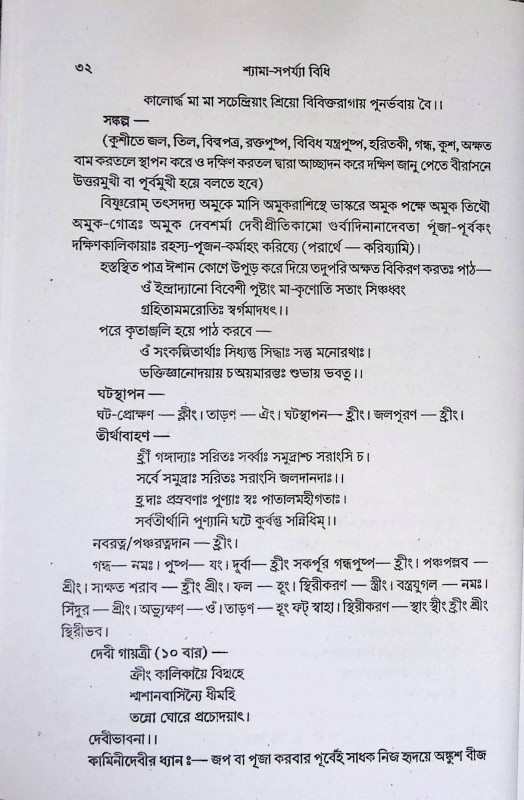 ৩২
শ্যামা-সপর্য্যা বিধি
কালোর্দ্ধ মা মা সচেন্দ্রিয়াং শ্রিয়ো বিবিক্তরাগায় পূনর্ভবায় বৈ।।
সঙ্কল্প —
(কুশীতে জল, তিল, বিল্বপত্র, রক্তপুষ্প, বিবিধ যন্ত্রপুষ্প, হরিতকী, গন্ধ, কুশ, অক্ষত
বাম করতলে স্থাপন করে ও দক্ষিণ করতল দ্বারা আচ্ছাদন করে দক্ষিণ জানু পেতে বীরাসনে
উত্তরমুখী বা পূর্বমুখী হয়ে বলতে হবে)
বিষ্ণুরোম্ তৎসদদ্য অমুকে মাসি অমুকরাশিস্থে ভাস্করে অমুক পক্ষে অমুক তিথৌ
অমুক-গোত্রঃ অমুক দেবশর্মা দেবীপ্রীতিকামো গুর্বাদিনানাদেবতা পূজা-পূর্বকং
দক্ষিণকালিকায়াঃ রহস্য-পূজন-কর্মাহং করিষ্যে (পরার্থে — করিষ্যামি)।
হস্তস্থিত পাত্র ঈশান কোণে উপুড় করে দিয়ে তদুপরি অক্ষত বিকিরণ করতঃ পাঠ—
ওঁ ইন্দ্রাদ্যানো বিবেশী পুষ্টাং মা-কৃণোতি সতাং সিঞ্চধ্বং
গ্রহিতামমরোতিঃ স্বর্গমাদধৎ।।
পরে কৃতাঞ্জলি হয়ে পাঠ করবে —
ওঁ সংকল্পিতার্থাঃ সিধ্যন্তু সিদ্ধাঃ সন্তু মনোরথাঃ।
ভক্তিজ্ঞানোদয়ায় চঅয়মারন্তঃ শুভায় ভবতু।।
ঘটস্থাপন —
ঘট-প্রোক্ষণ — ক্লীং। তাড়ণ — ঐং। ঘটস্থাপন— হ্রীং। জলপূরণ — হ্রীং।
তীর্থাবাহণ —
হ্রীঁ গঙ্গাদ্যাঃ সরিতঃ সর্ব্বাঃ সমুদ্রাশ্চ সরাংসি চ।
সর্বে সমুদ্রাঃ সরিতঃ সরাংসি জলদানদাঃ।।
হ্রদাঃ প্রস্রবণাঃ পুণ্যাঃ স্বঃ পাতালমহীগতাঃ।
সর্বতীর্থানি পুণ্যানি ঘটে কুর্বন্তু সন্নিধিম্।।
নবরত্ন/পঞ্চরত্নদান — হ্রীং।
গন্ধ— নমঃ। পুষ্প— যং। দূর্বা— হ্রীং সকর্পূর গন্ধপুষ্প— হ্রীং। পঞ্চপল্লব —
শ্রীং। সাক্ষত শরাব — হ্রীং শ্রীং। ফল — হূং। স্থিরীকরণ — স্ত্রীং। বস্ত্রযুগল — নমঃ।
সিঁদুর — শ্রীং। অভ্যুক্ষণ — ওঁ। তাড়ণ — হূং ফট্ স্বাহা। স্থিরীকরণ — স্থাং স্থীং হ্রীং শ্রীং
স্থিরীভব।
দেবী গায়ত্রী (১০ বার) —
ক্রীং কালিকায়ৈ বিদ্মহে
শ্মশানবাসিন্যৈ ধীমহি
তন্নো ঘোরে প্রচোদয়াৎ।
দেবীভাবনা।।
কামিনীদেবীর ধ্যান ঃ— জপ বা পূজা করবার পূর্বেই সাধক নিজ হৃদয়ে অঙ্কুশ বীজ